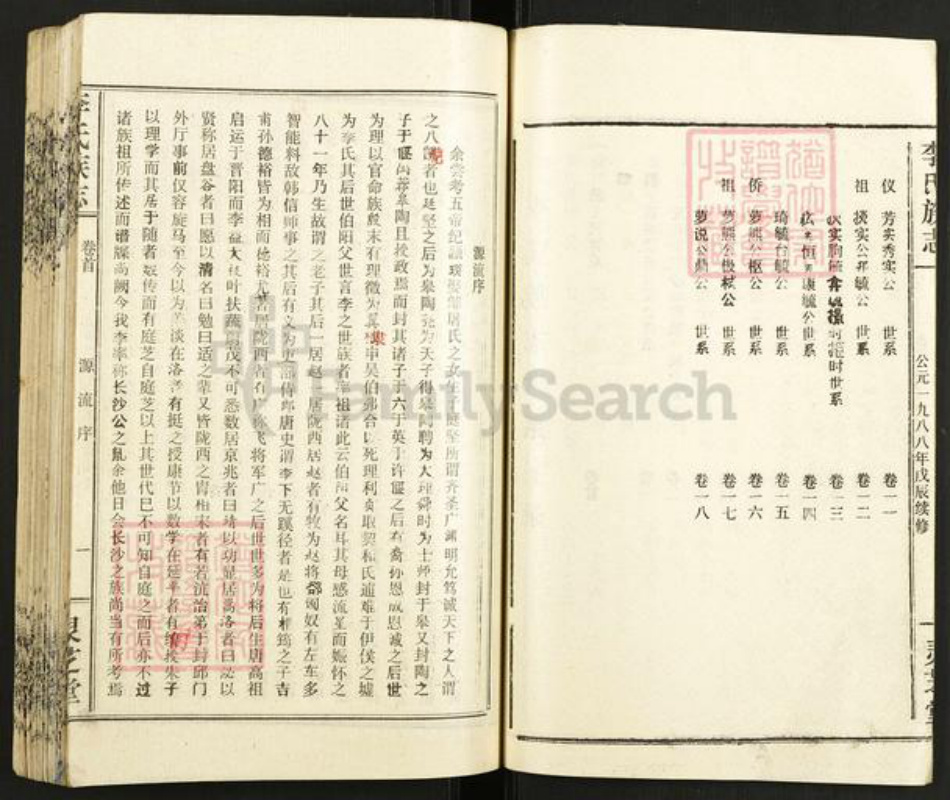 李氏族志
公元一九八八年戊辰续修
灵芝堂
仪 芳实秀实公 世系 卷一一
祖 挟实公昇毓公 世系 卷一二
世系 卷一三
世系 卷一四
琦毓台毓公 世系 卷一五
侨 梦熊公枢公 世系 卷一六
祖 梦熊公极栻公 世系 卷一七
梦说公 世系 卷一八
源流序
余尝考五帝纪 之女生子庭坚所谓齐圣广渊明允笃诚天下之人谓
之八恺者也庭坚之后为皋陶尧为天子得皋陶聘为大理舜时为士师封于皋又封陶之
子于偃 荐皋陶且授政焉而封其诸子于六于英于许偃之后有裔孙恩成恩诚之后世
为理以官命族殷末有理徵为翼隶中吴伯弗合以死理利贞取契和氏逋难于伊侯之墟
为李氏其后世伯阳父世言李之世族者率祖诸此云伯阳父名耳其母感流星而娠怀之
八十一年乃生故谓之老子其后一居赵一居陇西居赵者有牧为赵将郤匈奴有左车多
智能料敌韩信师事之其后有义为吏部侍郎唐史谓李下无蹊径者是也有栖筠之子吉
甫孙德裕皆为相而德裕尤著居陇西者有广称飞将军广之后世世多为将后生唐高祖
启运于晋阳而李益大枝叶扶疏蕃茂不可悉数居京兆者曰靖以功显居嵩洛者曰泌以
贤称居盘谷者曰愿以清名曰勉曰适之辈又皆陇西之胄相宋者有若沆治第于封邱门
外厅事前仅容旋马至今以为美谈在洛者有挺之授康节以数学在延平者有侗授朱子
以理学而其居于随者数传而有庭芝自庭芝以上其世代已不可知自庭芝而后亦不过
诸族祖所传述而谱牒尚阙今我李率称长沙公之胤余他日会长沙之族尚当有所考焉
李氏族志
卷首
源流序
一
灵芝堂
FamilySearch